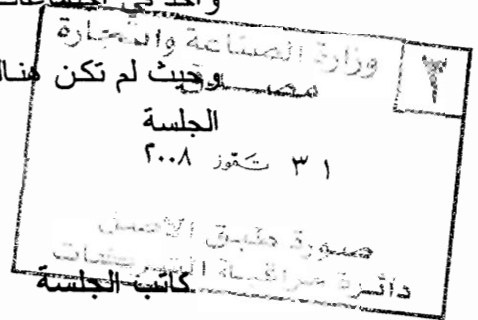 واحد في اجتماعات
وزارة الصناعة والتجارة
٢
وحيث لم تكن هنا
مصدق
الجلسة
٣١ تموز ٢٠٠٨
صورة طبق الأصل
دائرة مراقبة
كاتب الجلسة